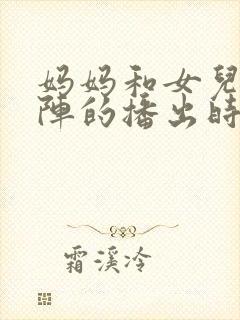 妈妈和女兒
陣的播出時
霜溪冷